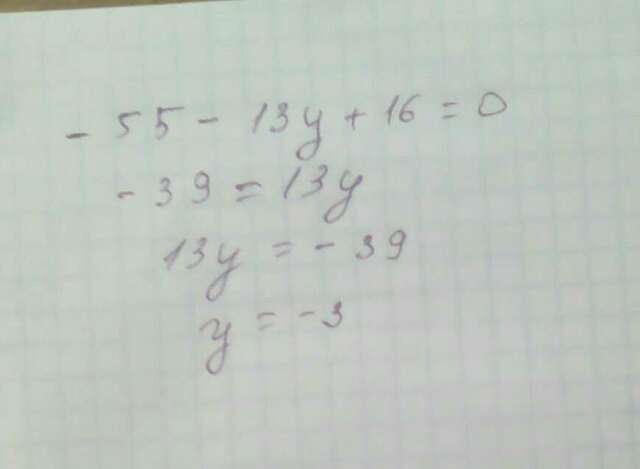 - 55 - 13y + 16 = 0
- 39 = 13y
13y = - 39
y = - 3